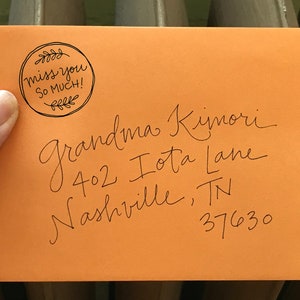 miss you
SO MUCH!
Grandma Kimori
402 Iota Lane
Nashville, TN
37630